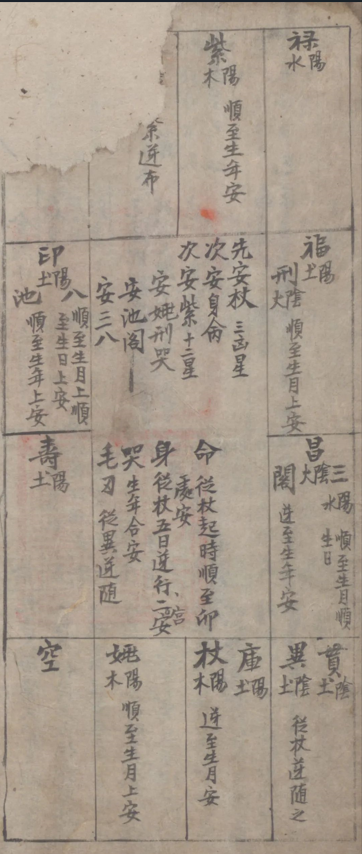 禄陽水
紫陽木
順至生年安
系逆布
福陽土
刑陰火
順至生月上安
先安杖三凶星
次安身命
次安紫十二星
安姚刑哭
安池阁
安三八
印陽土
八順至生月上順至生日上安
池順至生年上安
昌陰火
三陽水順至生月順生日
閣逆至生年安
命從杖起時順至卯處安
身從杖五日逆行二宫安
哭生年合安
毛刃從異逆随
壽陽土
貫陰土
異陰土
從杖逆随之
庫陽土
杖陽木
逆至生月安
姚陽木
順至生月上安
空